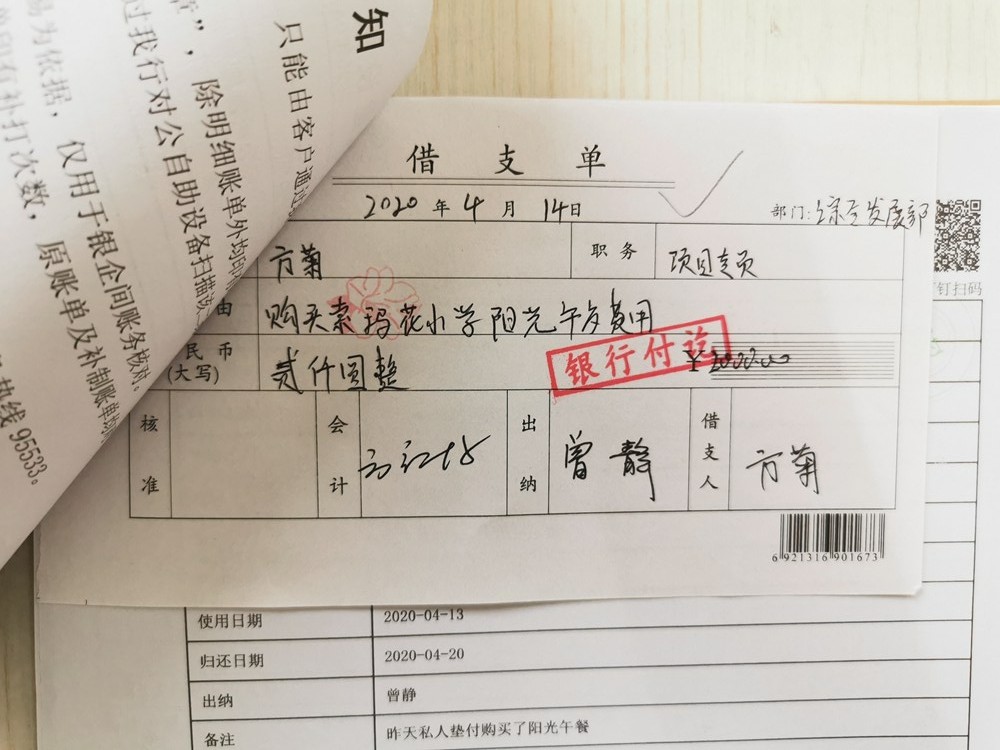 知
只能由客户通过
章”，除明细账单外均由
过我行对公自助设备扫描
易为依据，仅用于银企间账务核对
补打次数，原账单及补制账单
热线95533。
借支单
2020年4月14日
部门：发展部
方菊
职务
项目专员
由
购买索玛花小学阳光午餐费用
民币
(大写)
贰仟圆整
银行付讫
¥2000.00
核准
会计
出纳
曾静
借支人
方菊
6 921316 901673
钉扫码
使用日期
2020-04-13
归还日期
2020-04-20
出纳
曾静
备注
昨天私人垫付购买了阳光午餐